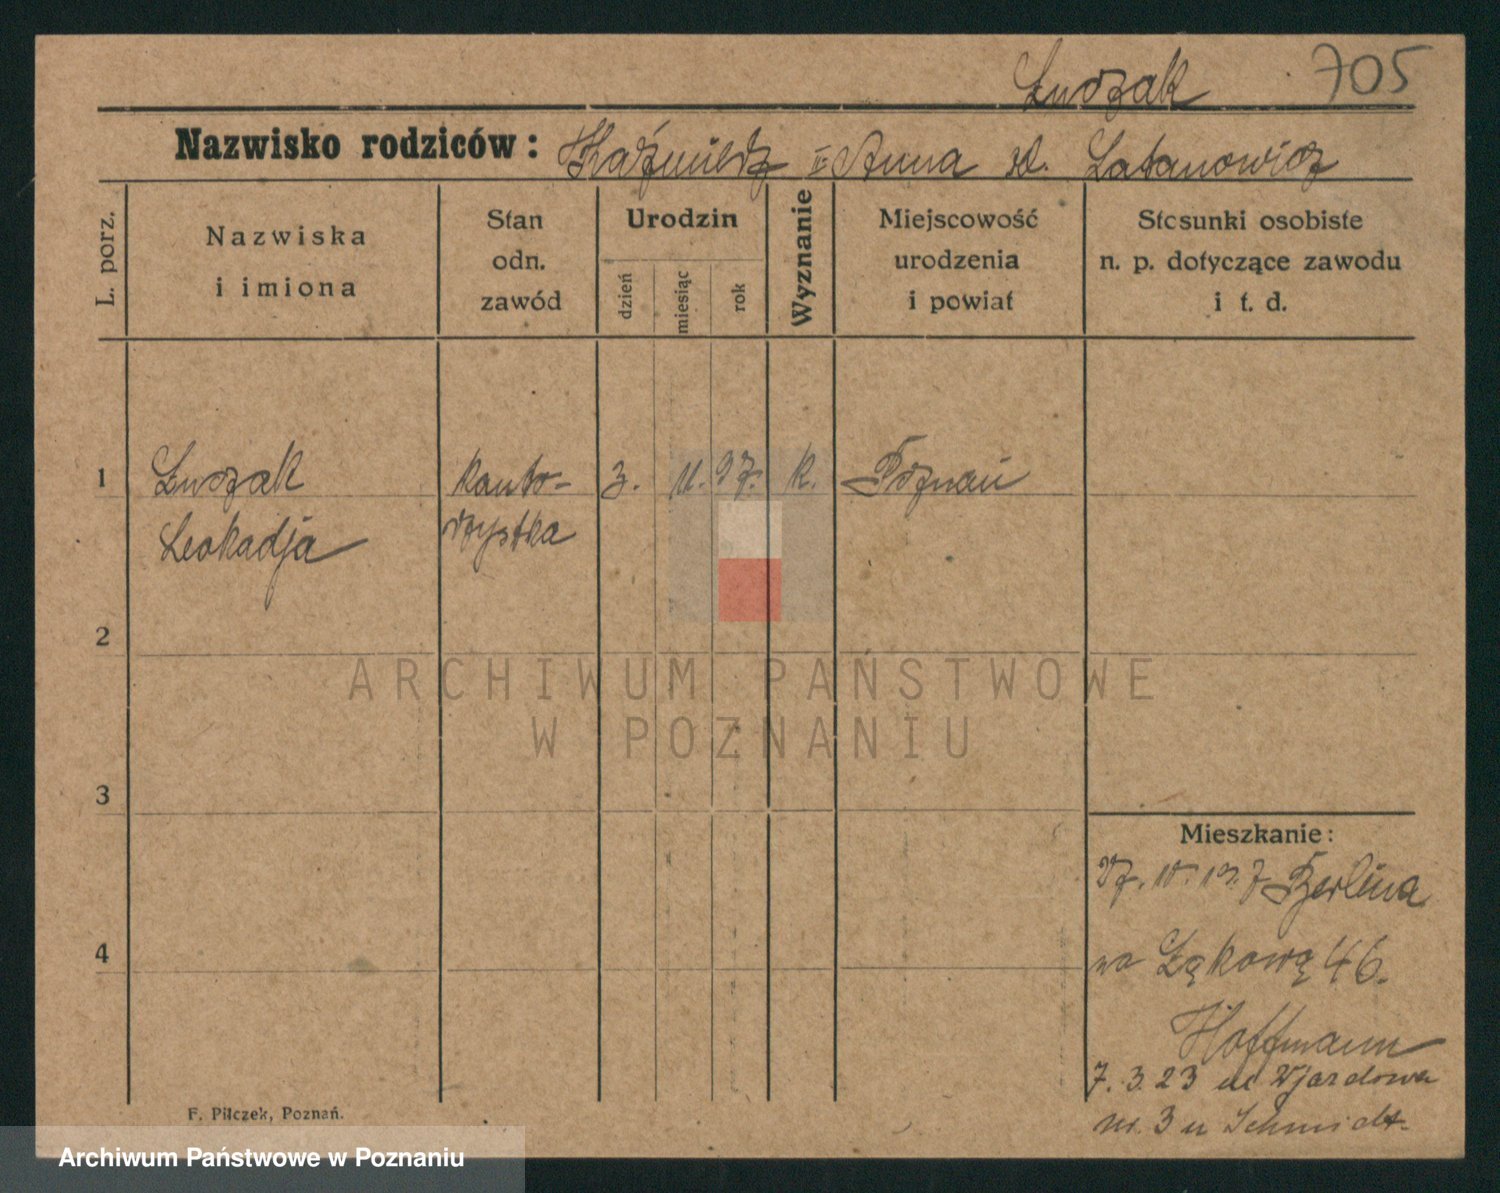 Łuczak 705
Nazwisko rodziców: Kaźmierz i Anna zd. Latanowicz
L. porz.
Nazwiska
i imiona
Stan
odn.
zawód
Urodzin
dzień
miesiąc
rok
Wyznanie
Miejscowość
urodzenia
i powiat
Stosunki osobiste
n. p. dotyczące zawodu
i t. d.
1 Łuczak kanto- 3. 11. 97. k. Poznań
Leokadja rzystka
2
3
4
Mieszkanie:
z Berlina
na Łąkową 46.
Hoffmann
7. 3. 23 ul Wjazdowa
nr. 3 u Schmidt.
F. Pilczek, Poznań.
ARCHIWUM PAŃSTWOWE
W POZNANIU
Archiwum Państwowe w Poznaniu